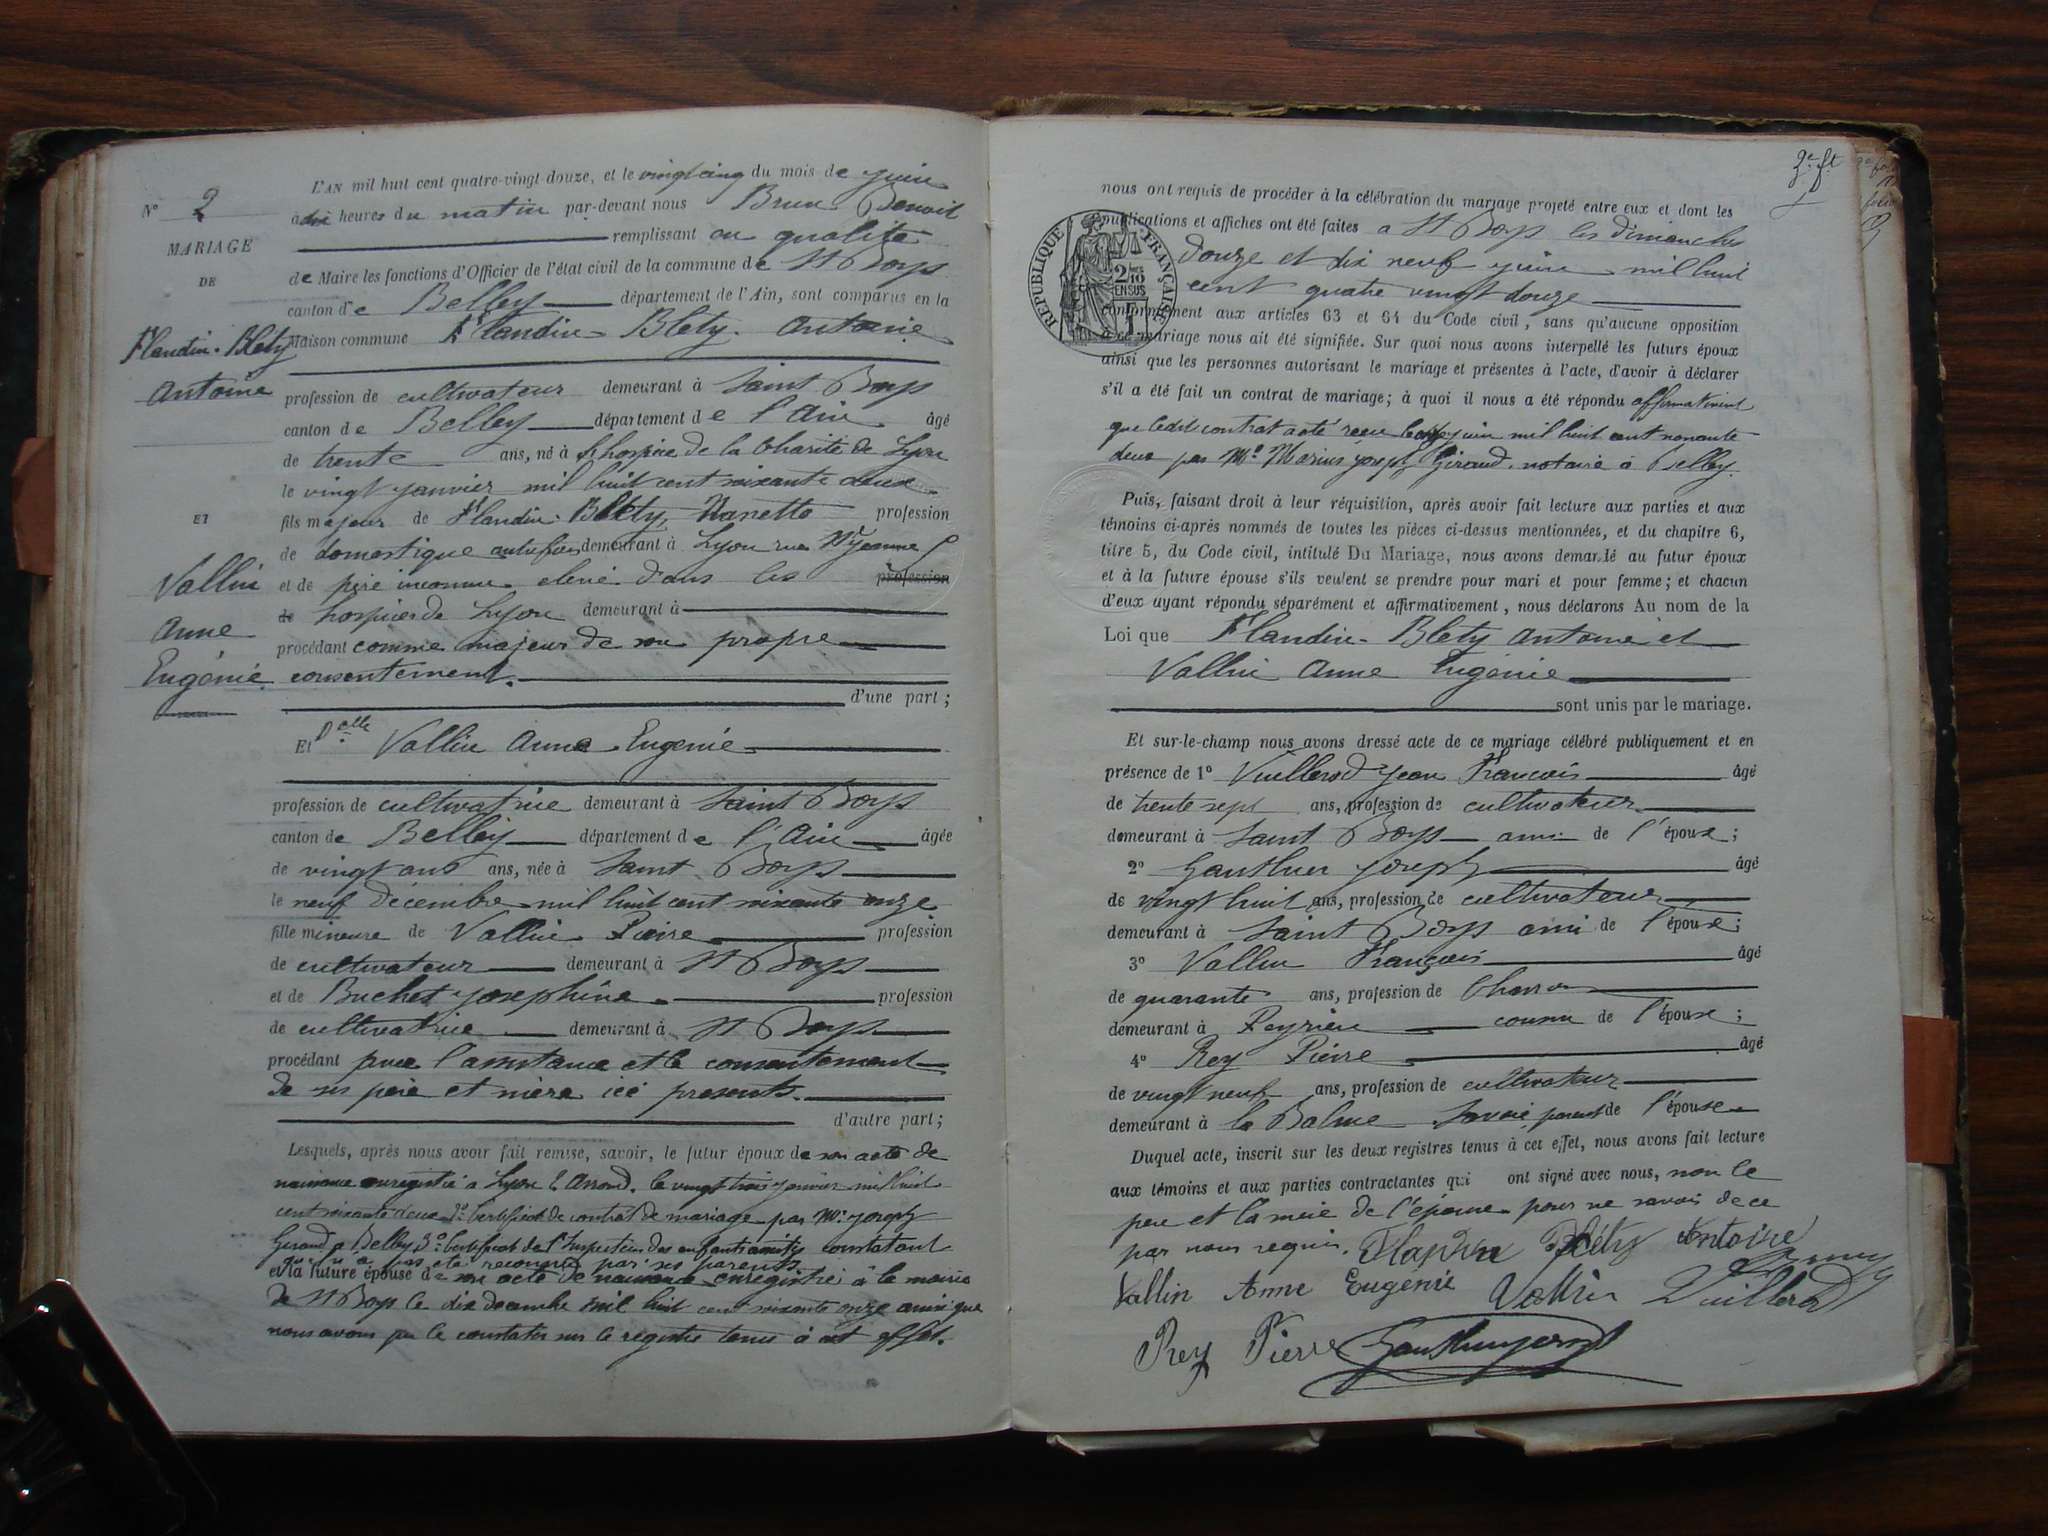 N° 2
MARIAGE
DE
Flandin-Blety
Antoine
ET
Vallin
Anne
Eugénie
L'AN mil huit cent quatre-vingt-douze, et le vingt cinq du mois de juin
à dix heures du matin par-devant nous Brun Benoit
remplissant en qualité
de Maire les fonctions d'Officier de l'état civil de la commune de St Boys
canton de Belley département de l'Ain, sont comparus en la
Maison commune Flandin-Blety Antoine
profession de cultivateur demeurant à Saint Boys
canton de Belley département de l'Ain âgé
de trente ans, né à l'hospice de la Charité de Lyon
le vingt janvier mil huit cent soixante deux
fils majeur de Flandin-Blety, Nanette profession
de domestique autrefois demeurant à Lyon rue Ste Jeanne
et de père inconnu élevé dans les profession
de hospices de Lyon demeurant à
procédant comme majeur de son propre
consentement.
d'une part;
Et Delle Vallin Anna Eugenie
profession de cultivatrice demeurant à Saint Boys
canton de Belley département de l'Ain âgée
de vingt ans ans, née à Saint Boys
le neuf décembre mil huit cent soixante onze
fille mineure de Vallin Pierre profession
de cultivateur demeurant à St Boys
et de Buchet Josephine profession
de cultivatrice demeurant à St Boys
procédant avec l'assistance et le consentement
de ses père et mère ici présents.
d'autre part;
Lesquels, après nous avoir fait remise, savoir, le futur époux de son acte de
naissance enregistré à Lyon 2 Arrond. le vingt trois janvier mil huit
cent soixante deux 2° Certificat de contrat de mariage par Me Joseph
Giraud à Belley 3° Certificat de l'Inspecteur des enfants assistés constatant
qu'il n'a pas été reconnu par ses parents
et la future épouse de son acte de naissance enregistré à la mairie
de St Boys le dix decembre mil huit cent soixante onze ainsi que
nous avons pu le constater sur le registre tenu à cet effet.
2e ft
nous ont requis de procéder à la célébration du mariage projeté entre eux et dont les
publications et affiches ont été faites à St Boys les dimanches
douze et dix neuf juin mil huit
cent quatre vingt douze
RÉPUBLIQUE FRANÇAISE
conformément aux articles 63 et 64 du Code civil, sans qu'aucune opposition
à ce mariage nous ait été signifiée. Sur quoi nous avons interpellé les futurs époux
ainsi que les personnes autorisant le mariage et présentes à l'acte, d'avoir à déclarer
s'il a été fait un contrat de mariage; à quoi il nous a été répondu affirmativement
que ledit contrat a été reçu le juin mil huit cent nonante
deux par Me Marius Joseph Giraud notaire à Belley
Puis, faisant droit à leur réquisition, après avoir fait lecture aux parties et aux
témoins ci-après nommés de toutes les pièces ci-dessus mentionnées, et du chapitre 6,
titre 5, du Code civil, intitulé Du Mariage, nous avons demandé au futur époux
et à la future épouse s'ils veulent se prendre pour mari et pour femme; et chacun
d'eux ayant répondu séparément et affirmativement, nous déclarons Au nom de la
Loi que Flandin-Blety Antoine et
Vallin Anne Eugénie
sont unis par le mariage.
Et sur-le-champ nous avons dressé acte de ce mariage célébré publiquement et en
présence de 1° Vuillerod Jean François âgé
de trente sept ans, profession de cultivateur
demeurant à Saint Boys ami de l'épouse;
2° Gauthier Joseph âgé
de vingt huit ans, profession de cultivateur
demeurant à Saint Boys ami de l'épouse;
3° Vallin François âgé
de quarante ans, profession de Charron
demeurant à Peyrieu cousin de l'épouse;
4° Rey Pierre âgé
de vingt neuf ans, profession de cultivateur
demeurant à la Balme Savoie parent de l'épouse
Duquel acte, inscrit sur les deux registres tenus à cet effet, nous avons fait lecture
aux témoins et aux parties contractantes qui ont signé avec nous, non le
père et la mère de l'épouse pour ne savoir de ce
par nous requis. Flandin Bléty Antoine
Vallin Anne Eugenie Vallin Vuillerod
Rey Pierre Gauthier Joseph